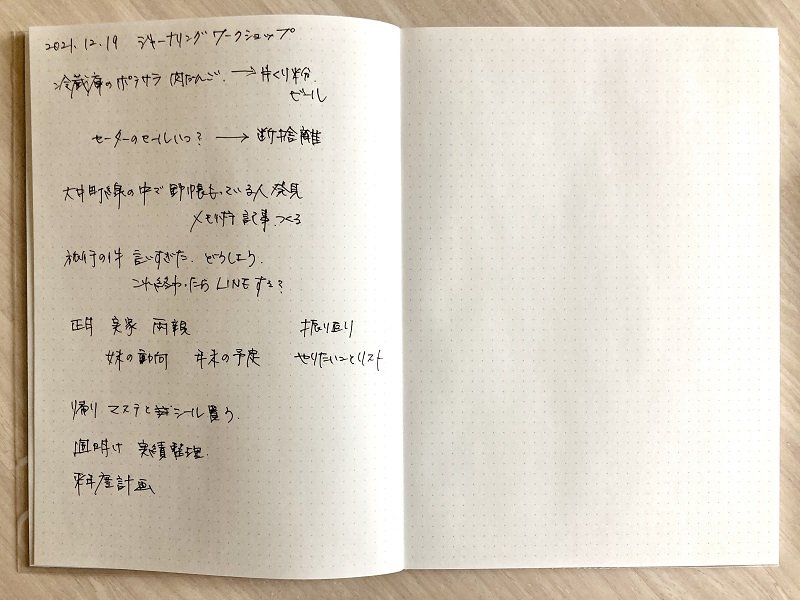 2021.12.19 ジャーナリングワークショップ
冷蔵庫のポテサラ 肉だんご. → 片くり粉.
ビール
セーターのセールいつ? → 断捨離
大井町線の中で野帳もっている人発見
メモ術 記事つくる
旅行の件 言いすぎた. どうしよう.
これ終わったらLINEする?
正月 実家 両親 振り返り
妹の動向 年末の予定 やりたいことリスト
帰り マステとシール買う.
週明け 実績整理.
来年度計画